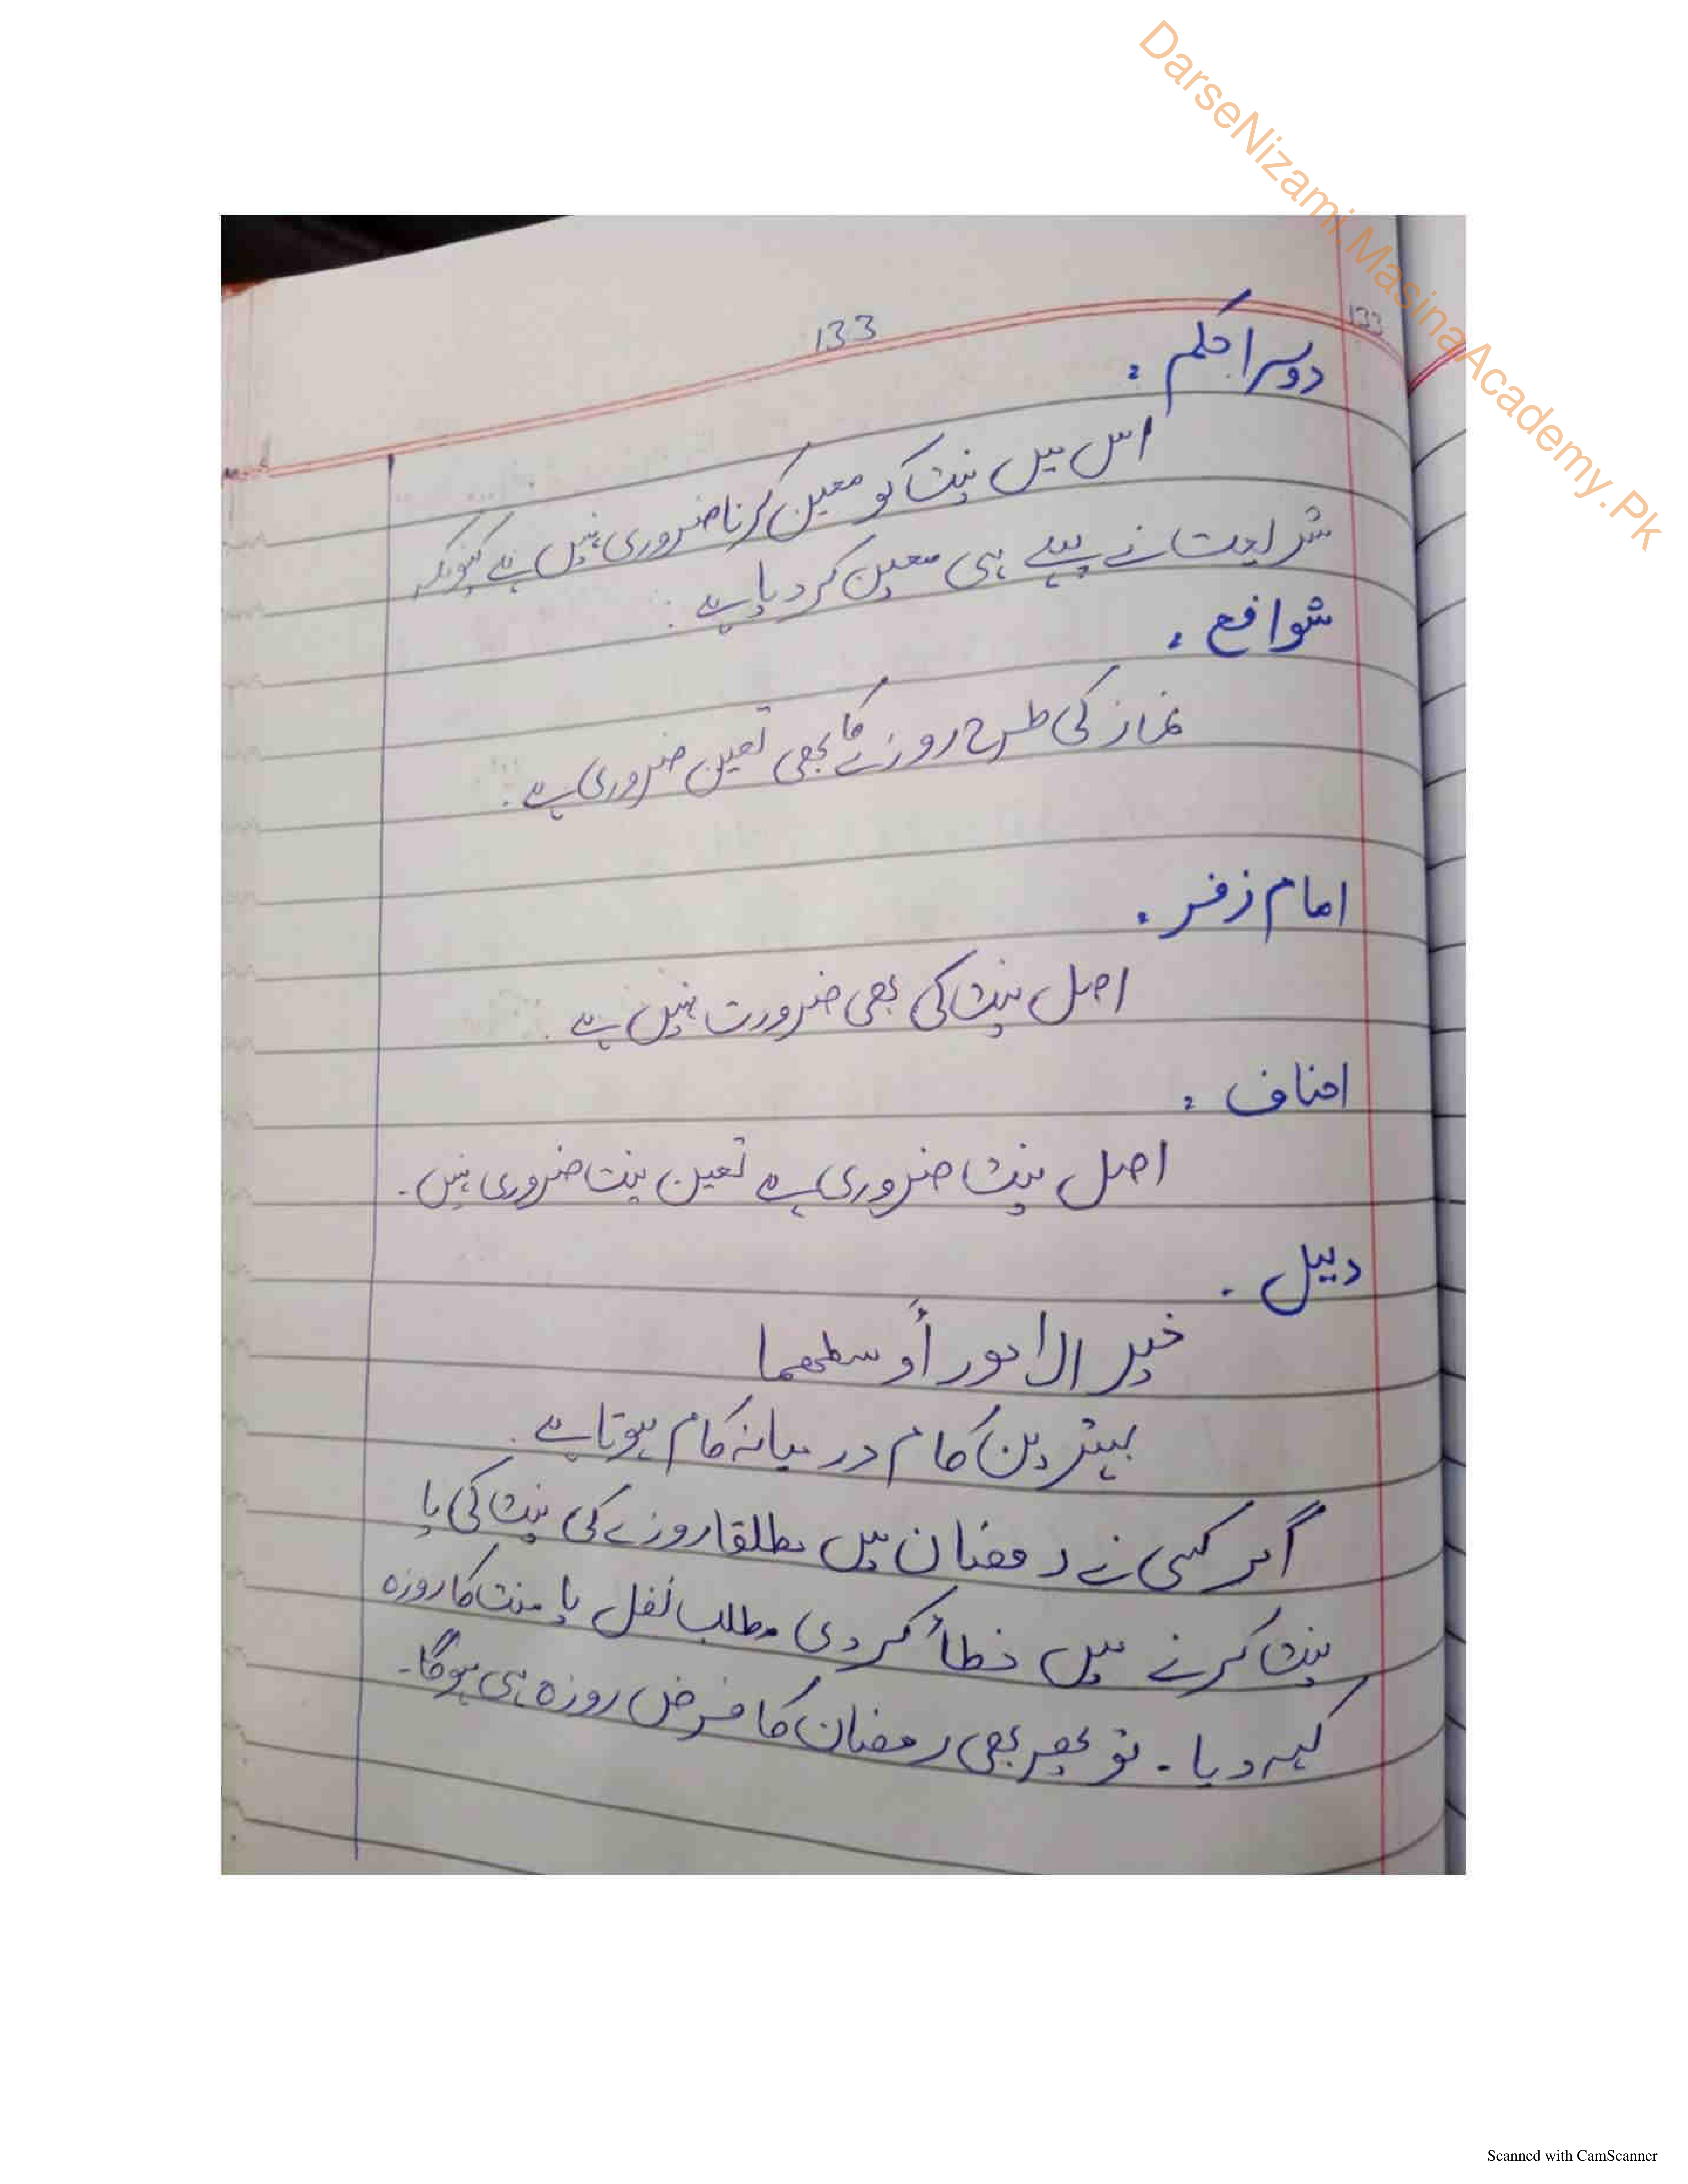 DarseNizami.MasinaAcademy.Pk
133
133
دوسرا حکم :
اس میں نیت کو معین کرنا ضروری نہیں ہے کیونکہ
شریعت نے پہلے ہی معین کر دیا ہے .
شوافع :
نماز کی طرح روزے کا بھی تعین ضروری ہے .
امام زفر .
اصل نیت کی بھی ضرورت نہیں ہے .
احناف :
اصل نیت ضروری ہے تعین نیت ضروری نہیں .
دلیل .
خیر الامور أوسطهما
بہترین کام درمیانہ کام ہوتا ہے .
اگر کسی نے رمضان میں مطلقا روزے کی نیت کی یا
نیت کرنے میں خطأ کر دی مطلب نفل یا منت کا روزہ
کہہ دیا . تو پھر بھی رمضان کا فرض روزہ ہی ہوگا .
Scanned with CamScanner